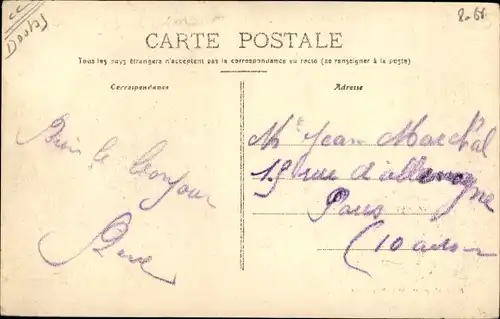 Doubs
CARTE POSTALE
Tous les pays étrangers n'acceptent pas la correspondance au recto (se renseigner à la poste)
Correspondance
Adresse
Bien le bonjour
Mr Jean Marchal
rue d'allemagne
Paris
(10